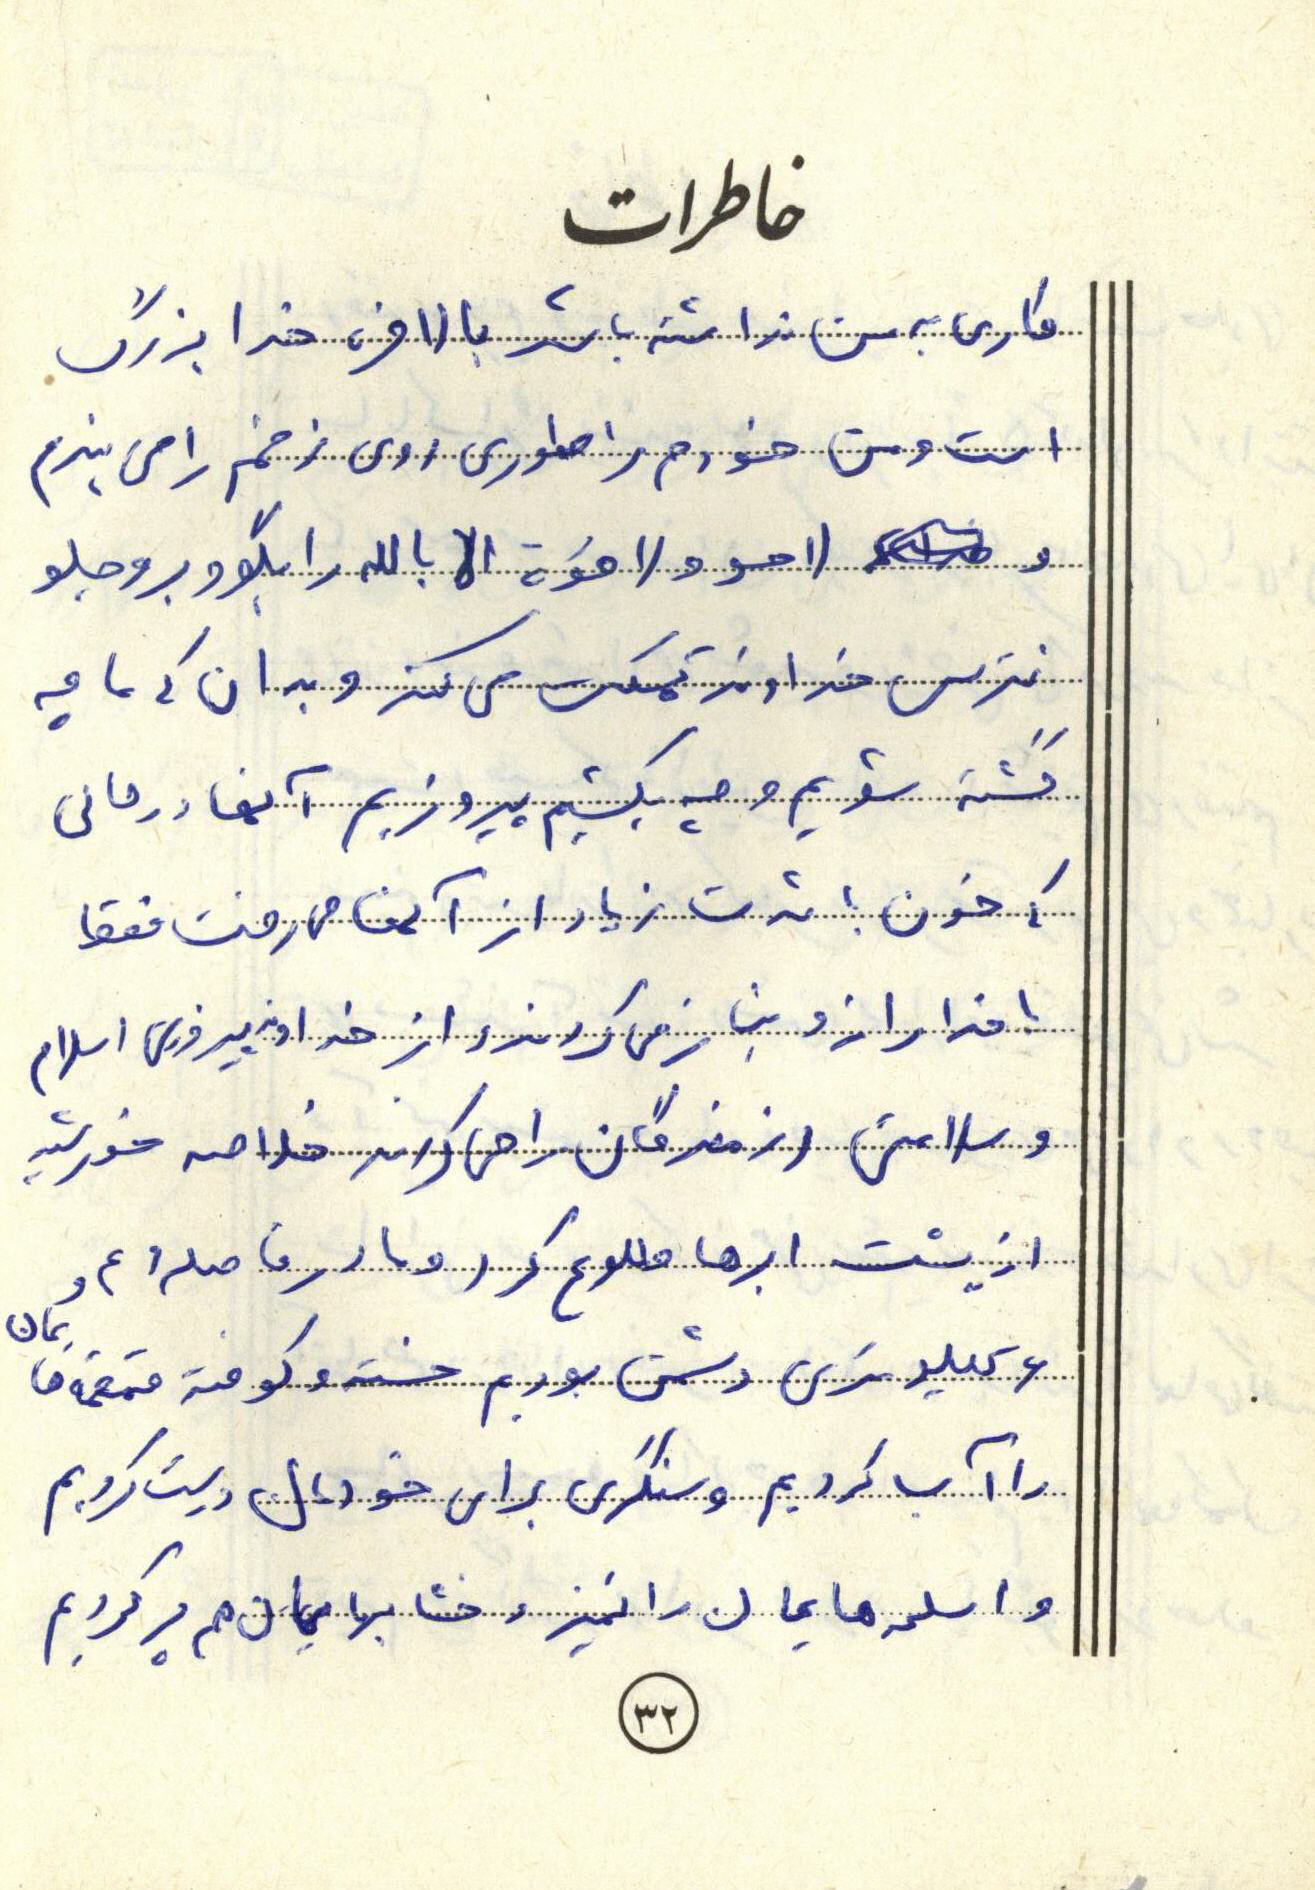 خاطرات
کاری به من نداشته باشد بالاخره خدا بزرگ
است و من خودم را طوری روی زخم را می بندم
و لا حول و لا قوة الا بالله را بگو و برو جلو
نترس خداوند کمکت می کند و بدان که ما چه
کشته شویم و چه بکشیم پیروزیم آنها در حالی
که خون با شدت زیاد از آنها می رفت فقط
با خدا راز و نیاز می کردند و از خداوند پیروزی اسلام
و سلامتی رزمندگان را می کردند خلاصه خورشید
از پشت ابرها طلوع کرد و ما در فاصله ۴ و
۶ کیلومتری دشمن بودیم خسته و کوفته قمقمه هایمان
را آب کردیم و سنگری برای خودمان درست کردیم
و اسلحه هایمان را تمیز و خشابهایمان هم پر کردیم
۳۲